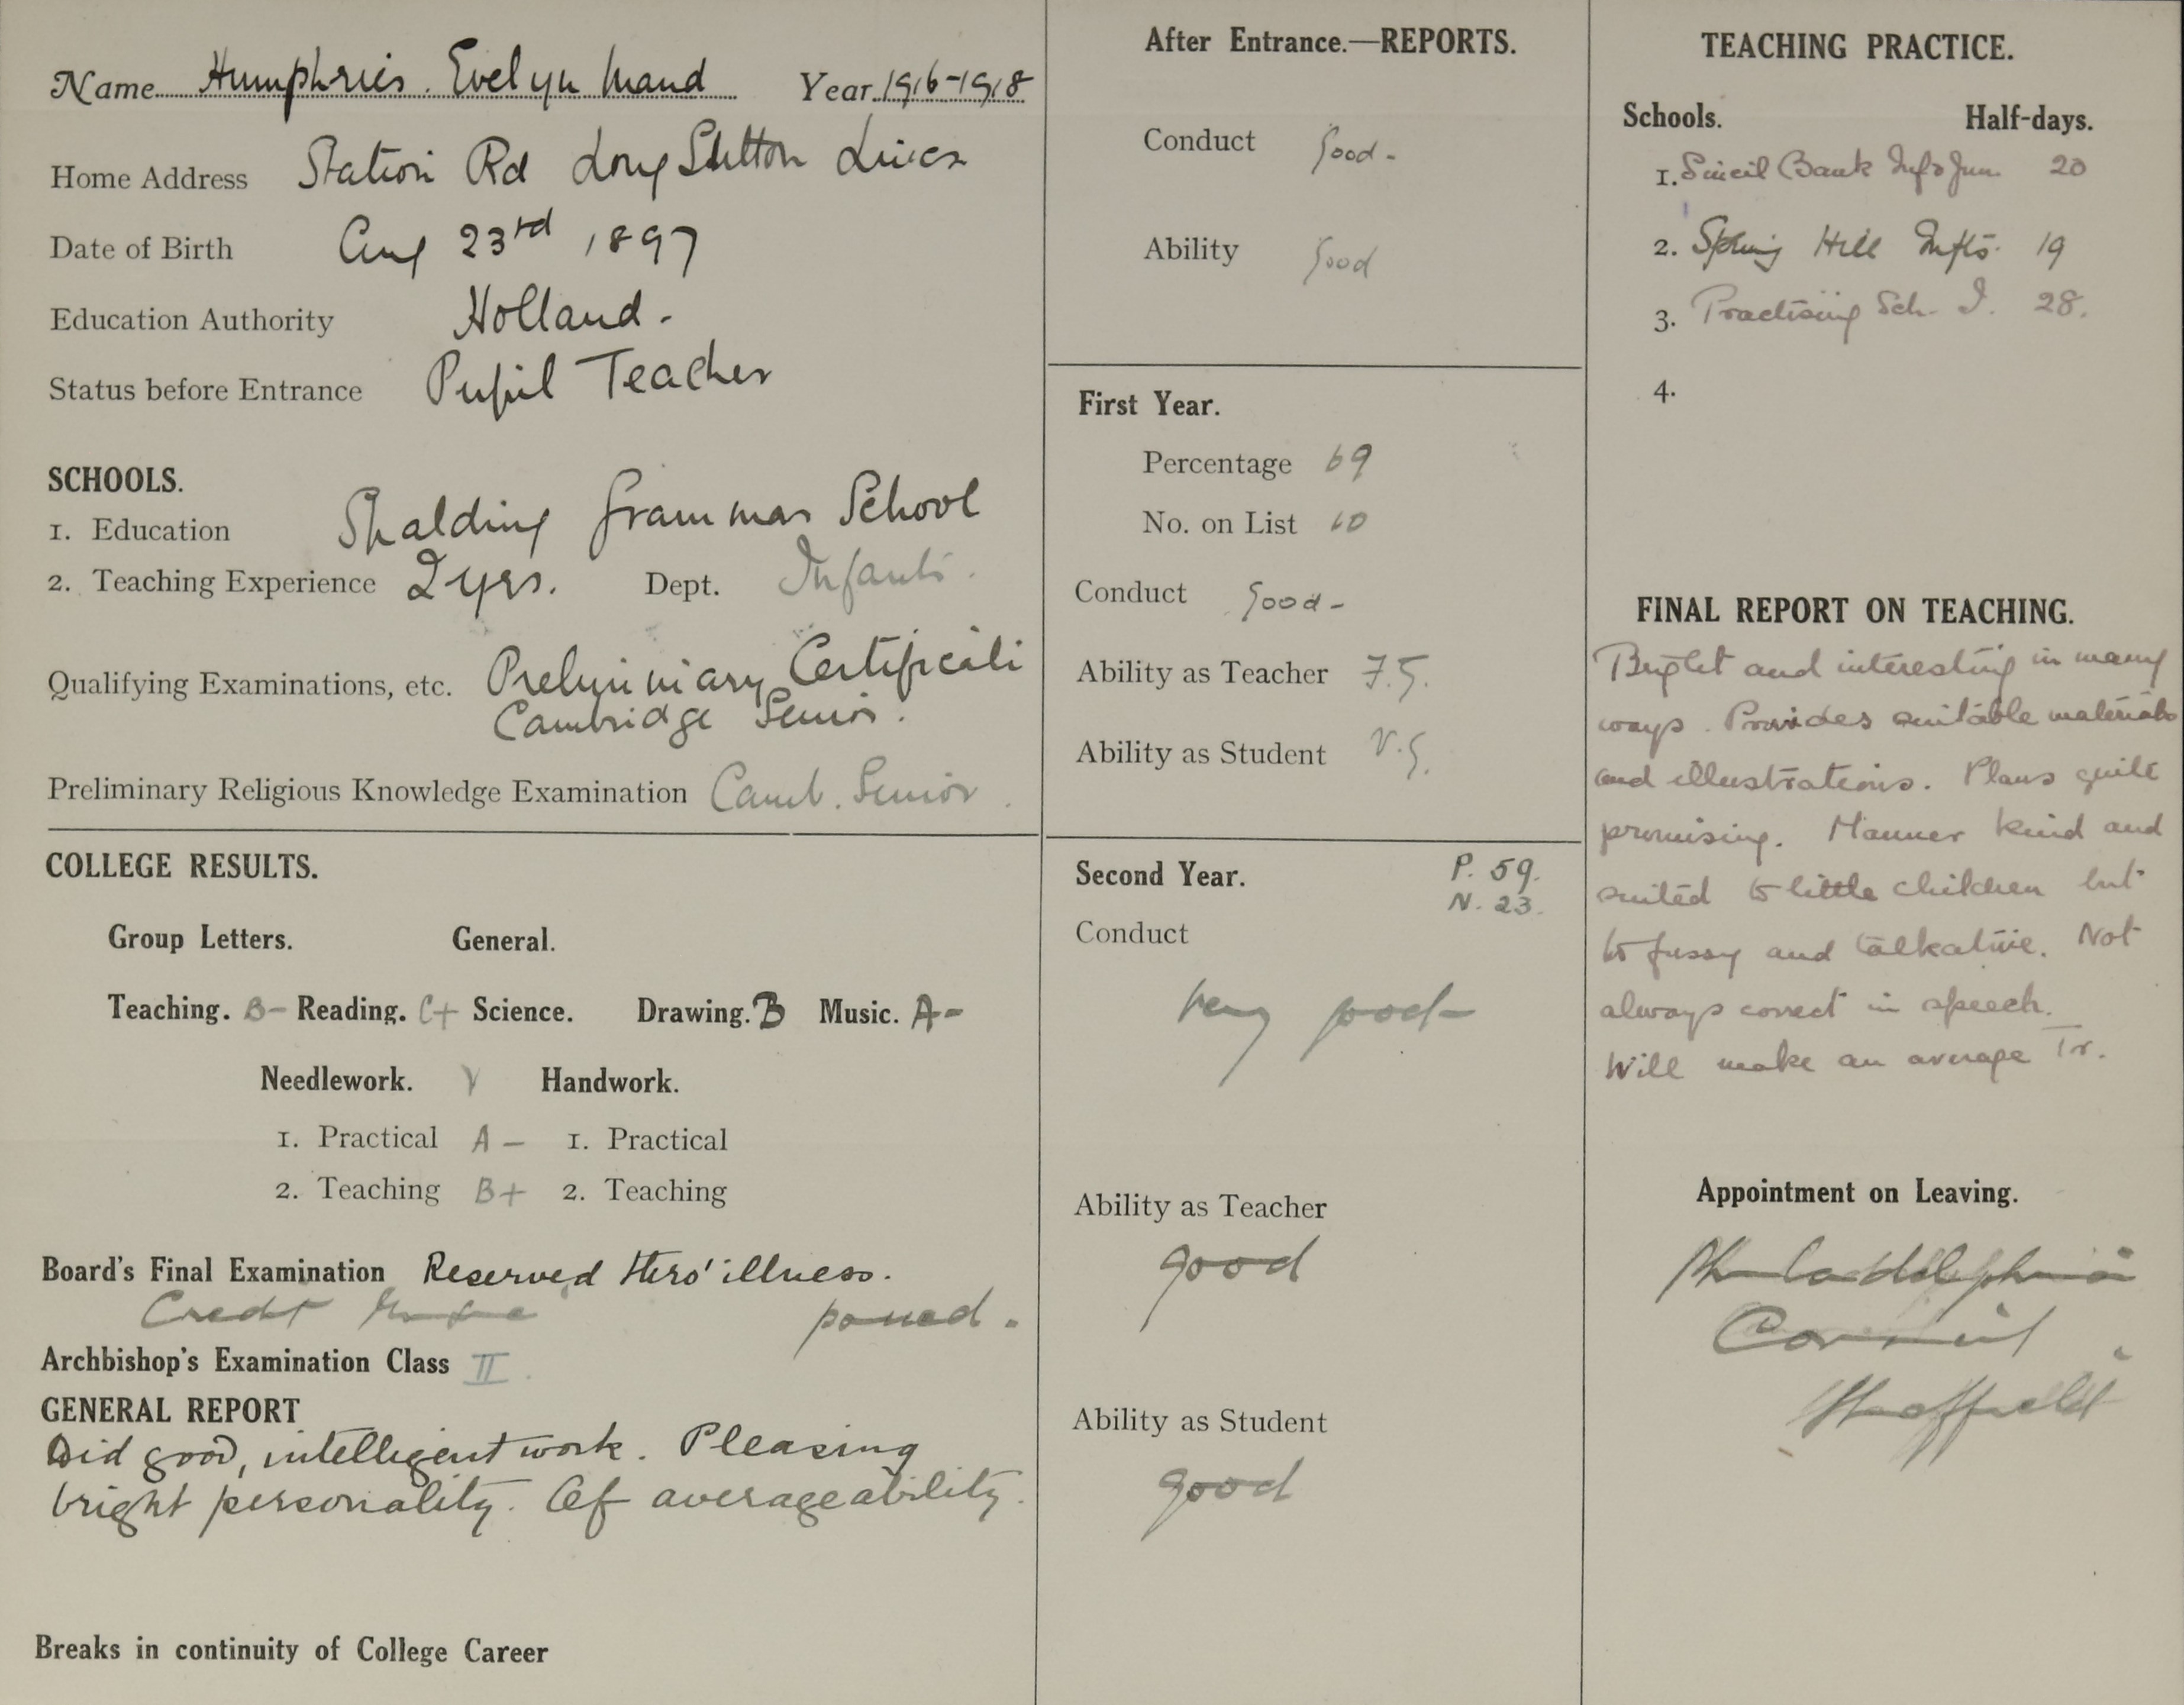 Name Humphries. Evelyn Maud Year 1916-1918
Home Address Station Rd Long Sutton Lincs
Date of Birth Aug 23rd 1897
Education Authority Holland.
Status before Entrance Pupil Teacher
SCHOOLS.
1. Education Spalding Grammar School
2. Teaching Experience 2 yrs. Dept. Infants.
Qualifying Examinations, etc. Preliminary Certificate
Cambridge Senior.
Preliminary Religious Knowledge Examination Camb. Senior.
COLLEGE RESULTS.
Group Letters. General.
Teaching. B- Reading. C+ Science. Drawing. B Music. A-
Needlework. Handwork.
1. Practical A- 1. Practical
2. Teaching B+ 2. Teaching
Board's Final Examination Reserved thro' illness.
Credit passed.
Archbishop's Examination Class II.
GENERAL REPORT
Did good, intelligent work. Pleasing
bright personality. Of average ability.
Breaks in continuity of College Career
After Entrance.—REPORTS.
Conduct Good-
Ability Good
First Year.
Percentage 69
No. on List 10
Conduct Good-
Ability as Teacher F.G.
Ability as Student V.G.
Second Year. P. 59.
N. 23.
Conduct
Very good-
Ability as Teacher
good
Ability as Student
good
TEACHING PRACTICE.
Schools. Half-days.
1. Sincil Bank Inf & Jun. 20
2. Spring Hill Infts. 19
3. Practising Sch. I. 28.
4.
FINAL REPORT ON TEACHING.
Bright and interesting in many
ways. Provides suitable materials
and illustrations. Plans quite
promising. Manner kind and
suited to little children but
to fussy and talkative. Not
always correct in speech.
Will make an average Tr.
Appointment on Leaving.
Philadelphia
Council
Sheffield